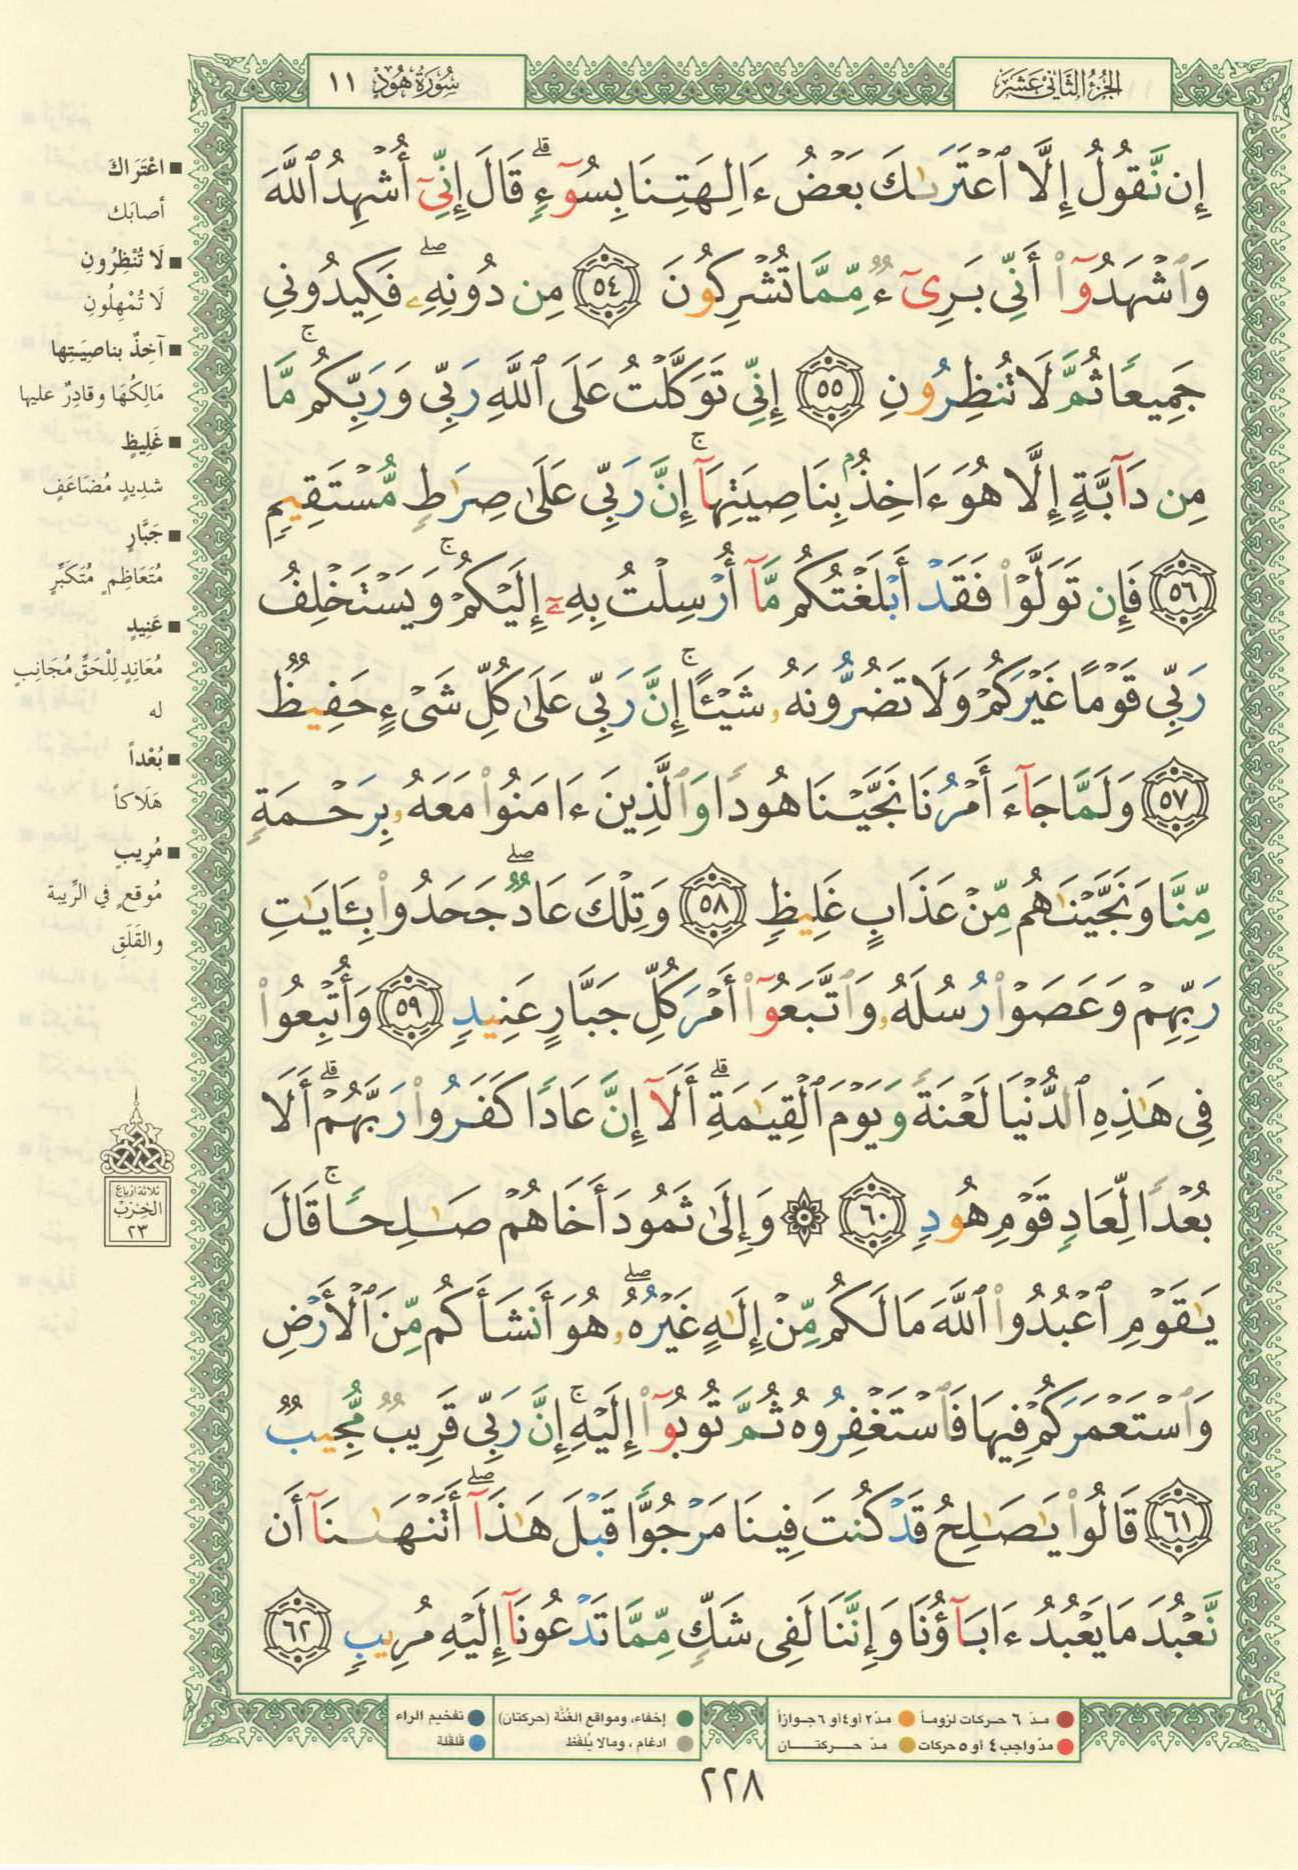 الجزء الثاني عشر
سورة هود ١١
إِن نَّقُولُ إِلَّا ٱعْتَرَىٰكَ بَعْضُ ءَالِهَتِنَا بِسُوٓءٍۗ قَالَ إِنِّىٓ أُشْهِدُ ٱللَّهَ
وَٱشْهَدُوٓا۟ أَنِّى بَرِىٓءٌ مِّمَّا تُشْرِكُونَ ٥٤ مِن دُونِهِۦۖ فَكِيدُونِى
جَمِيعًا ثُمَّ لَا تُنظِرُونِ ٥٥ إِنِّى تَوَكَّلْتُ عَلَى ٱللَّهِ رَبِّى وَرَبِّكُمۚ مَّا
مِن دَآبَّةٍ إِلَّا هُوَ ءَاخِذٌۢ بِنَاصِيَتِهَآۚ إِنَّ رَبِّى عَلَىٰ صِرَٰطٍ مُّسْتَقِيمٍ
٥٦ فَإِن تَوَلَّوْا۟ فَقَدْ أَبْلَغْتُكُم مَّآ أُرْسِلْتُ بِهِۦٓ إِلَيْكُمْۚ وَيَسْتَخْلِفُ
رَبِّى قَوْمًا غَيْرَكُمْ وَلَا تَضُرُّونَهُۥ شَيْـًٔاۚ إِنَّ رَبِّى عَلَىٰ كُلِّ شَىْءٍ حَفِيظٌ
٥٧ وَلَمَّا جَآءَ أَمْرُنَا نَجَّيْنَا هُودًا وَٱلَّذِينَ ءَامَنُوا۟ مَعَهُۥ بِرَحْمَةٍ
مِّنَّا وَنَجَّيْنَٰهُم مِّنْ عَذَابٍ غَلِيظٍ ٥٨ وَتِلْكَ عَادٌۖ جَحَدُوا۟ بِـَٔايَٰتِ
رَبِّهِمْ وَعَصَوْا۟ رُسُلَهُۥ وَٱتَّبَعُوٓا۟ أَمْرَ كُلِّ جَبَّارٍ عَنِيدٍ ٥٩ وَأُتْبِعُوا۟
فِى هَٰذِهِ ٱلدُّنْيَا لَعْنَةً وَيَوْمَ ٱلْقِيَٰمَةِۗ أَلَآ إِنَّ عَادًا كَفَرُوا۟ رَبَّهُمْۗ أَلَا
بُعْدًا لِّعَادٍ قَوْمِ هُودٍ ٦٠ ۞ وَإِلَىٰ ثَمُودَ أَخَاهُمْ صَٰلِحًاۚ قَالَ
يَٰقَوْمِ ٱعْبُدُوا۟ ٱللَّهَ مَا لَكُم مِّنْ إِلَٰهٍ غَيْرُهُۥۖ هُوَ أَنشَأَكُم مِّنَ ٱلْأَرْضِ
وَٱسْتَعْمَرَكُمْ فِيهَا فَٱسْتَغْفِرُوهُ ثُمَّ تُوبُوٓا۟ إِلَيْهِۚ إِنَّ رَبِّى قَرِيبٌ مُّجِيبٌ
٦١ قَالُوا۟ يَٰصَٰلِحُ قَدْ كُنتَ فِينَا مَرْجُوًّا قَبْلَ هَٰذَآۖ أَتَنْهَىٰنَآ أَن
نَّعْبُدَ مَا يَعْبُدُ ءَابَآؤُنَا وَإِنَّنَا لَفِى شَكٍّ مِّمَّا تَدْعُونَآ إِلَيْهِ مُرِيبٍ ٦٢
■ اعْتَرَاكَ
أصابَك
■ لَا تُنْظِرُونِ
لَا تُمْهِلُونِ
■ آخِذٌ بناصِيَتِها
مَالِكُهَا وقادِرٌ عليها
■ غَلِيظٍ
شدِيدٍ مُضَاعَفٍ
■ جَبَّارٍ
مُتَعَاظِمٍ مُتَكَبِّرٍ
■ عَنِيدٍ
مُعَانِدٍ لِلْحَقِّ مُجَانِبٍ
له
■ بُعْداً
هَلَاكاً
■ مُرِيبٍ
مُوقعٍ في الرِّيبة
والقَلَقِ
ثلاثة أرباع
الحزب
٢٣
مدّ ٦ حركات لزوماً مدّ ٢ أو ٤ أو ٦ جوازاً
مدّ واجب ٤ أو ٥ حركات مدّ حركتان
إخفاء، ومواقع الغُنَّة (حركتان)
ادغام، ومالا يُلفَظ
تفخيم الراء
قلقلة
٢٢٨